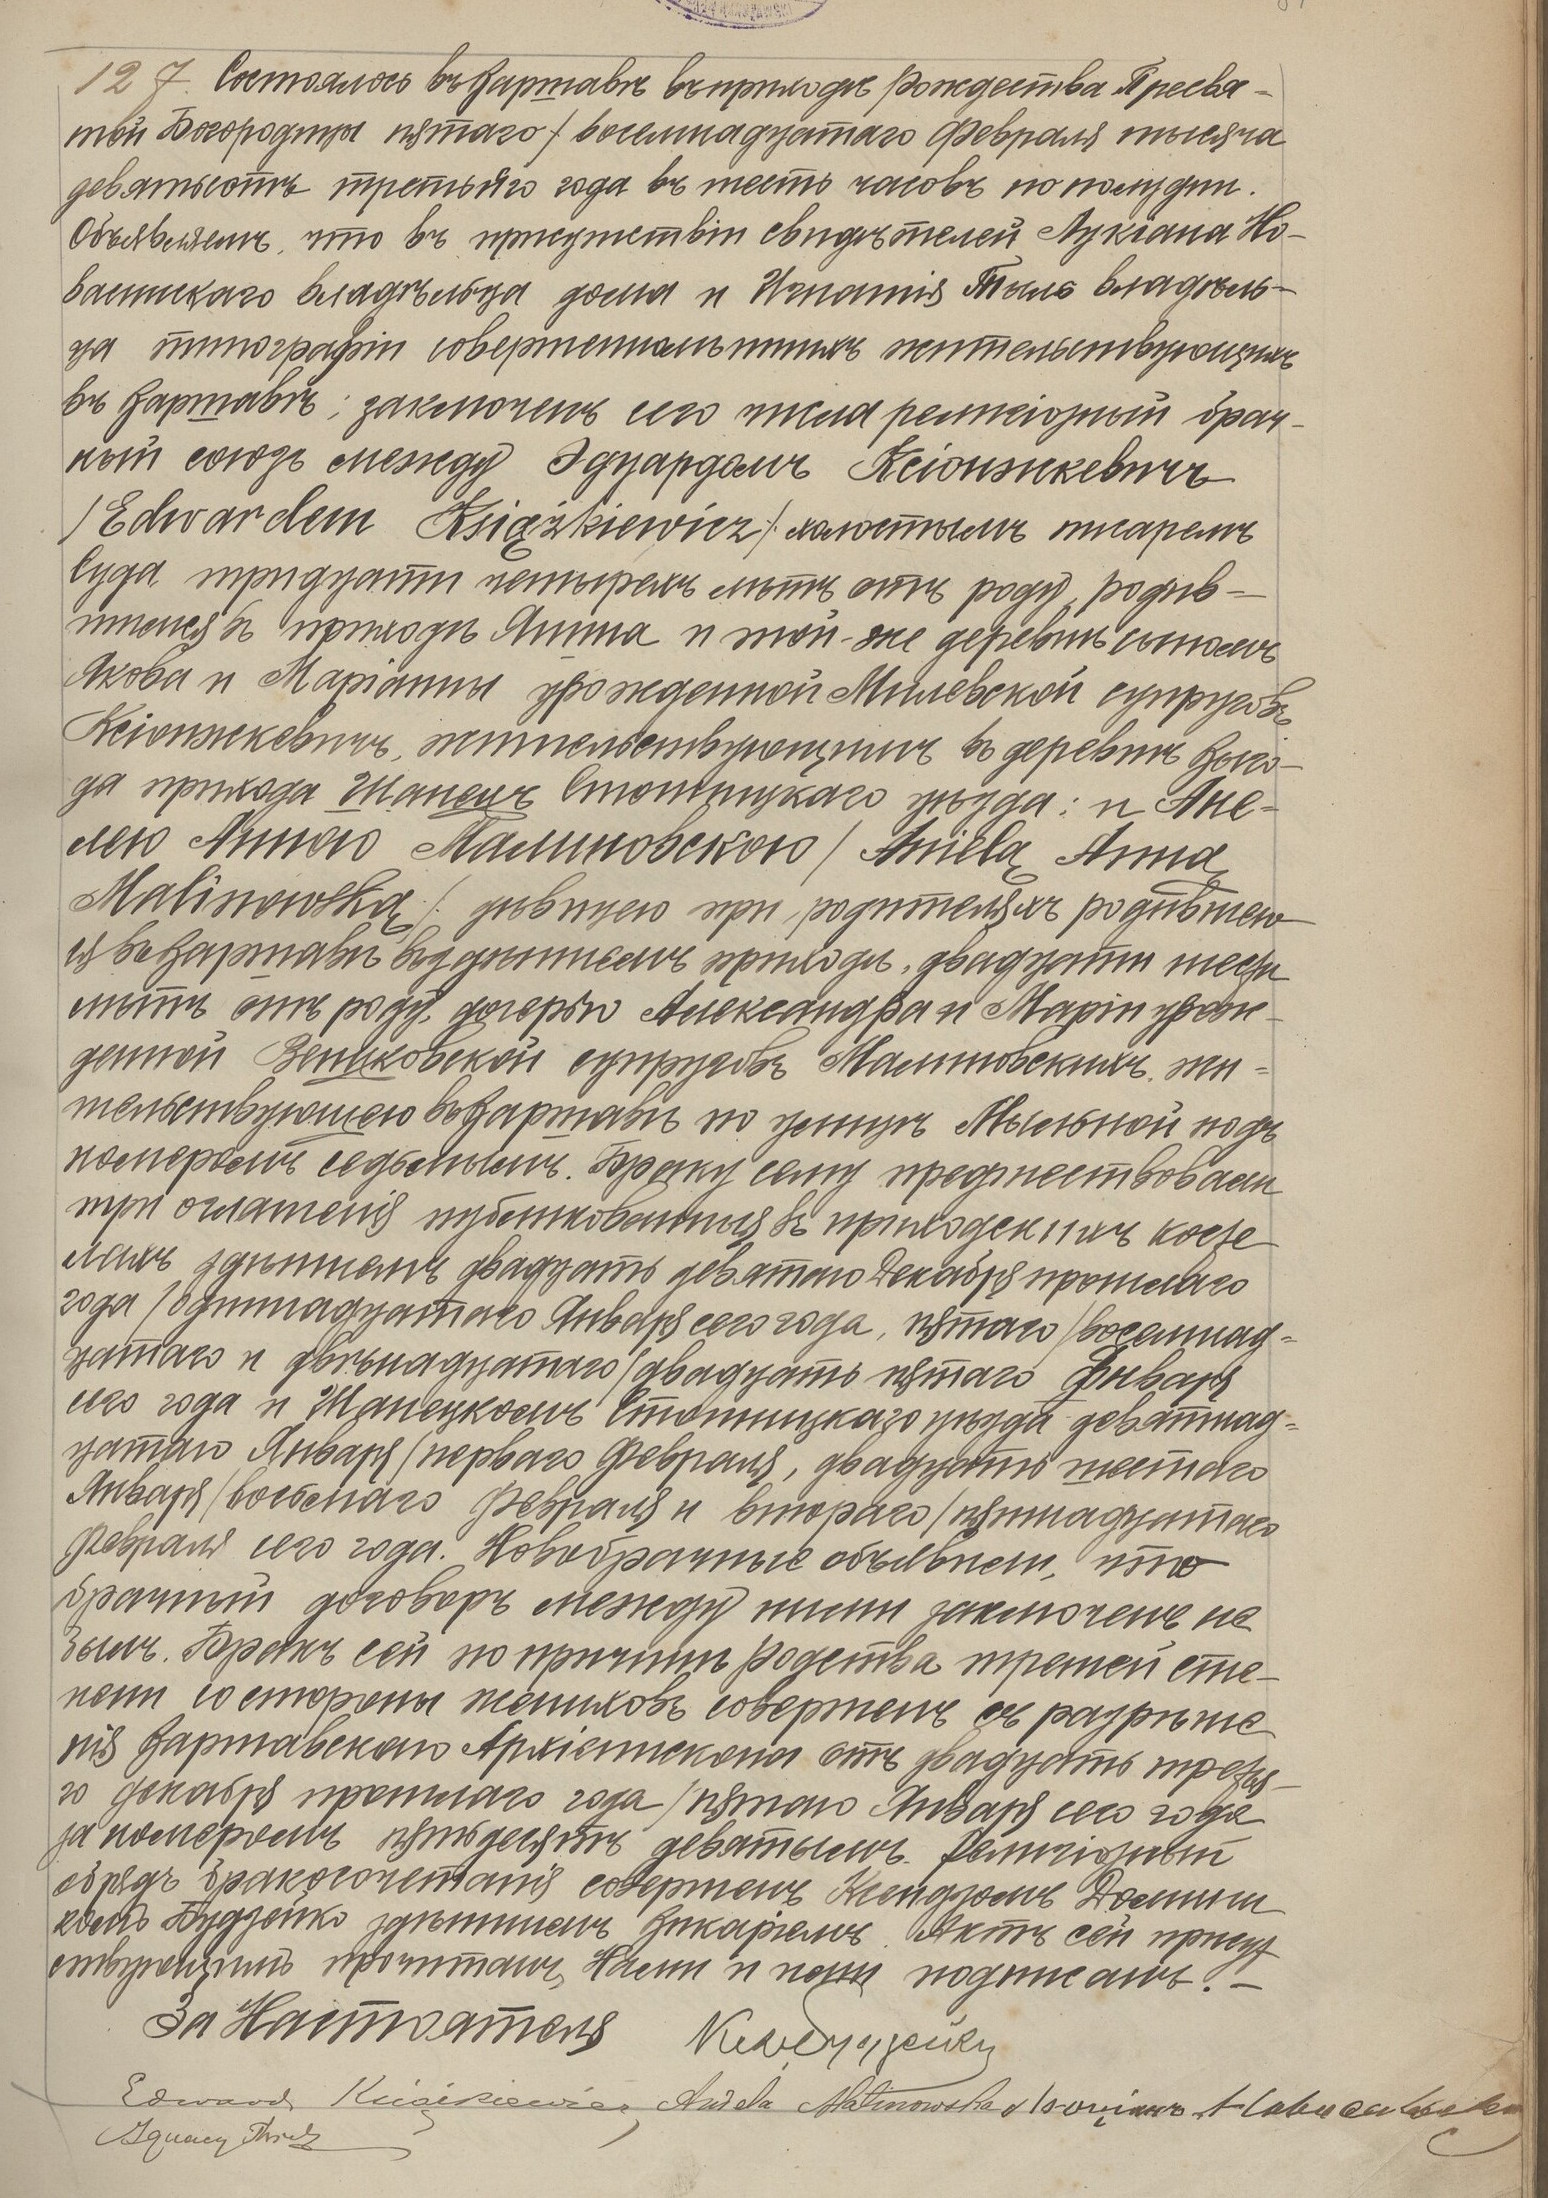 127. Состоялось въ Варшавѣ въ приходѣ Рождества Пресвя-
той Богородицы пятаго / восемнадцатаго Февраля тысяча
девятьсотъ третьяго года въ шесть часовъ по полудни.
Объявляемъ, что въ присутствіи свидѣтелей Лукіана
владѣльца дома и Игнатія владѣль-
ца типографіи совершеннолѣтнихъ жительствующихъ
въ Варшавѣ; заключенъ сего числа религіозный брач-
ный союзъ между Эдуардомъ Ксіонжкевичъ
/Edwardem Książkiewicz/ холостымъ писаремъ
Суда тридцати четырехъ лѣтъ отъ роду, родив-
шимся въ приходѣ и той-же деревнѣ сыномъ
Якова и Маріанны урожденной Милевской супруговъ
Ксіонжкевичъ, жительствующимъ въ деревнѣ Выго-
да прихода Шанецъ Стопницкаго уѣзда; и Ане-
лею Анною Малиновскою / Anielą Anną
Malinowską / дѣвицею при родителяхъ родившею
ся въ Варшавѣ въ здѣшнемъ приходѣ, двадцати шести
лѣтъ отъ роду, дочерью Александра и Маріи урож-
денной Зенцковской супруговъ Малиновскихъ, жи-
тельствующею въ Варшавѣ по улицѣ Мыльной подъ
номеромъ седьмымъ. Браку сему предшествовали
три оглашенія публикованныя въ приходскихъ косте
лахъ здѣшнемъ двадцать девятаго Декабря прошлаго
года / одиннадцатаго Января сего года, пятаго / восемнад-
цатаго и двѣнадцатаго / двадцать пятаго Января
сего года и Шанецкомъ Стопницкаго уѣзда девятнад-
цатаго Января / перваго Февраля, двадцать шестаго
Января / восьмаго Февраля и втораго / пятнадцатаго
Февраля сего года. Новобрачные объявили, что
брачный договоръ между ними заключенъ не
былъ. Бракъ сей по причинѣ родства третьей сте-
пени со стороны жениховъ совершенъ съ разрѣше
нія Варшавскаго Архіепископа отъ двадцать третья-
го декабря прошлаго года / пятаго Января сего года
за номеромъ пятьдесятъ девятымъ. Религіозный
обрядъ бракосочетанія совершенъ Ксендзомъ Домини
комъ Будзейко здѣшнимъ Викаріемъ. Актъ сей присут
ствующимъ прочитанъ, Нами и ними подписанъ. –
За Настоятеля
Edward Książkiewicz, Aniela Malinowska
Ignacy